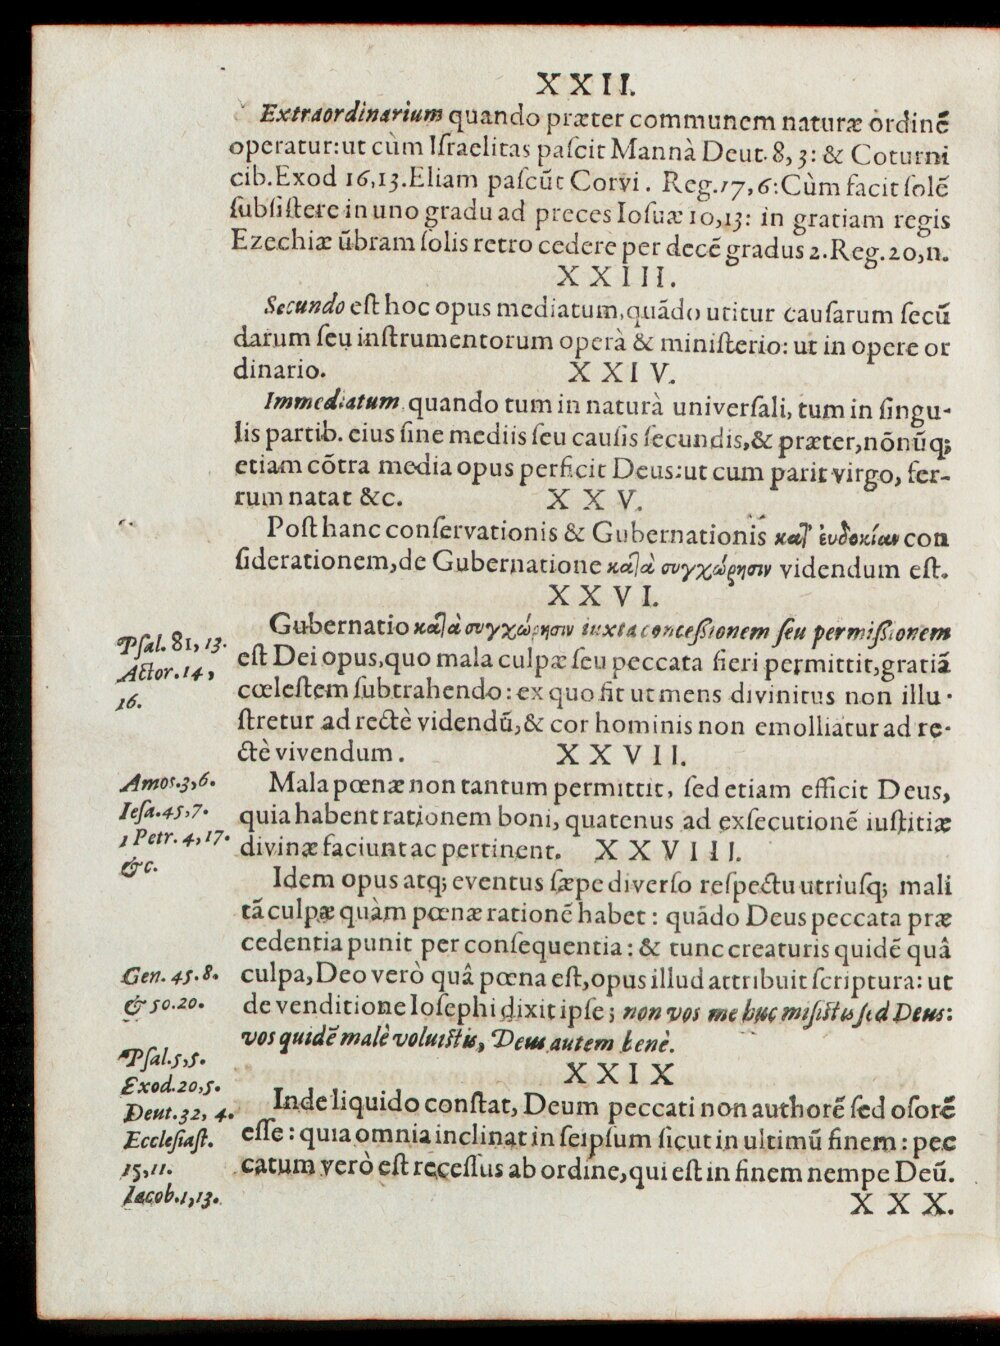 XXII.
Extraordinarium quando præter communem naturæ ordinē
operatur: ut cùm Iſraelitas paſcit Mannà Deut. 8, 3: & Coturni
cib. Exod 16, 13. Eliam paſcūt Corvi. Reg. 17, 6: Cùm facit ſolē
ſubſiſtere in uno gradu ad preces Ioſuæ 10, 13: in gratiam regis
Ezechiæ ũbram ſolis retro cedere per decē gradus 2. Reg. 20, 11.
XXIII.
Secundo eſt hoc opus mediatum, quādo utitur cauſarum ſecū
darum ſeu inſtrumentorum operà & miniſterio: ut in opere or
dinario. XXIV.
Immediatum quando tum in naturà univerſali, tum in ſingu-
lis partib. eius ſine mediis ſeu cauſis ſecundis, & præter, nōnūq;
etiam cōtra media opus perficit Deus: ut cum parit virgo, fer-
rum natat &c. XXV.
Poſt hanc conſervationis & Gubernationis κατ᾽ ἐυδοκίαν con
ſiderationem, de Gubernatione κατὰ συγχώρησιν videndum eſt.
XXVI.
Gubernatio κατὰ συγχώρησιν iuxta conceßionem ſeu permißionem
eſt Dei opus, quo mala culpæ ſeu peccata fieri permittit, gratiā
cœleſtem ſubtrahendo: ex quo fit ut mens divinitus non illu-
ſtretur ad rectè videndū, & cor hominis non emolliatur ad re-
ctè vivendum. XXVII.
Pſal. 81, 13.
Actor. 14,
16.
Mala pœnæ non tantum permittit, ſed etiam efficit Deus,
quia habent rationem boni, quatenus ad exſecutionē iuſtitiæ
divinæ faciunt ac pertinent. XXVIII.
Amos. 3, 6.
Ieſa. 45, 7.
1 Petr. 4, 17.
&c.
Idem opus atq; eventus ſæpe diverſo reſpectu utriuſq; mali
tā culpæ quàm pœnæ rationē habet: quādo Deus peccata præ
cedentia punit per conſequentia: & tunc creaturis quidē quâ
culpa, Deo verò quâ pœna eſt, opus illud attribuit ſcriptura: ut
de venditione Ioſephi dixit ipſe; non vos me huc miſiſtis ſed Deus:
vos quidē malè voluiſtis, Deus autem benè.
Gen. 45. 8.
& 50. 20.
XXIX
Inde liquido conſtat, Deum peccati non authorē ſed oſorē
eſſe: quia omnia inclinat in ſeipſum ſicut in ultimū finem: pec
catum verò eſt receſſus ab ordine, qui eſt in finem nempe Deū.
Pſal. 5, 5.
Exod. 20, 5.
Deut. 32, 4.
Eccleſiaſt.
15, 11.
Iacob. 1, 13.
XXX.